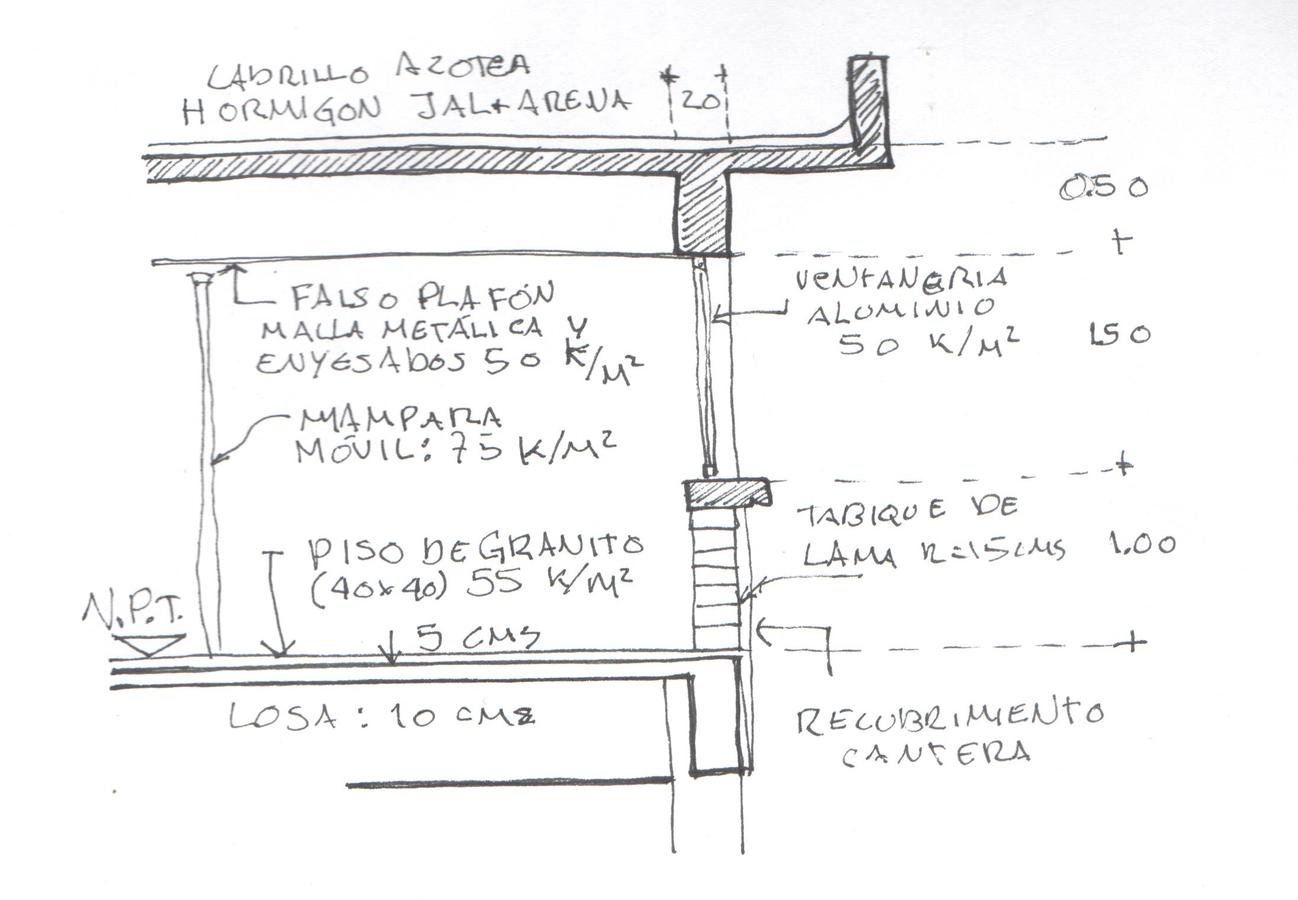 LADRILLO AZOTEA
HORMIGON JAL+ARENA
20
0.50
FALSO PLAFÓN
MALLA METÁLICA Y
ENYESADOS 50 K/M²
VENTANERIA
ALUMINIO
50 K/M²
1.50
MAMPARA
MÓVIL: 75 K/M²
TABIQUE DE
LAMA R=15 CMS
1.00
PISO DE GRANITO
(40x40) 55 K/M²
N.P.T.
5 CMS
LOSA: 10 CMS
RECUBRIMIENTO
CANTERA